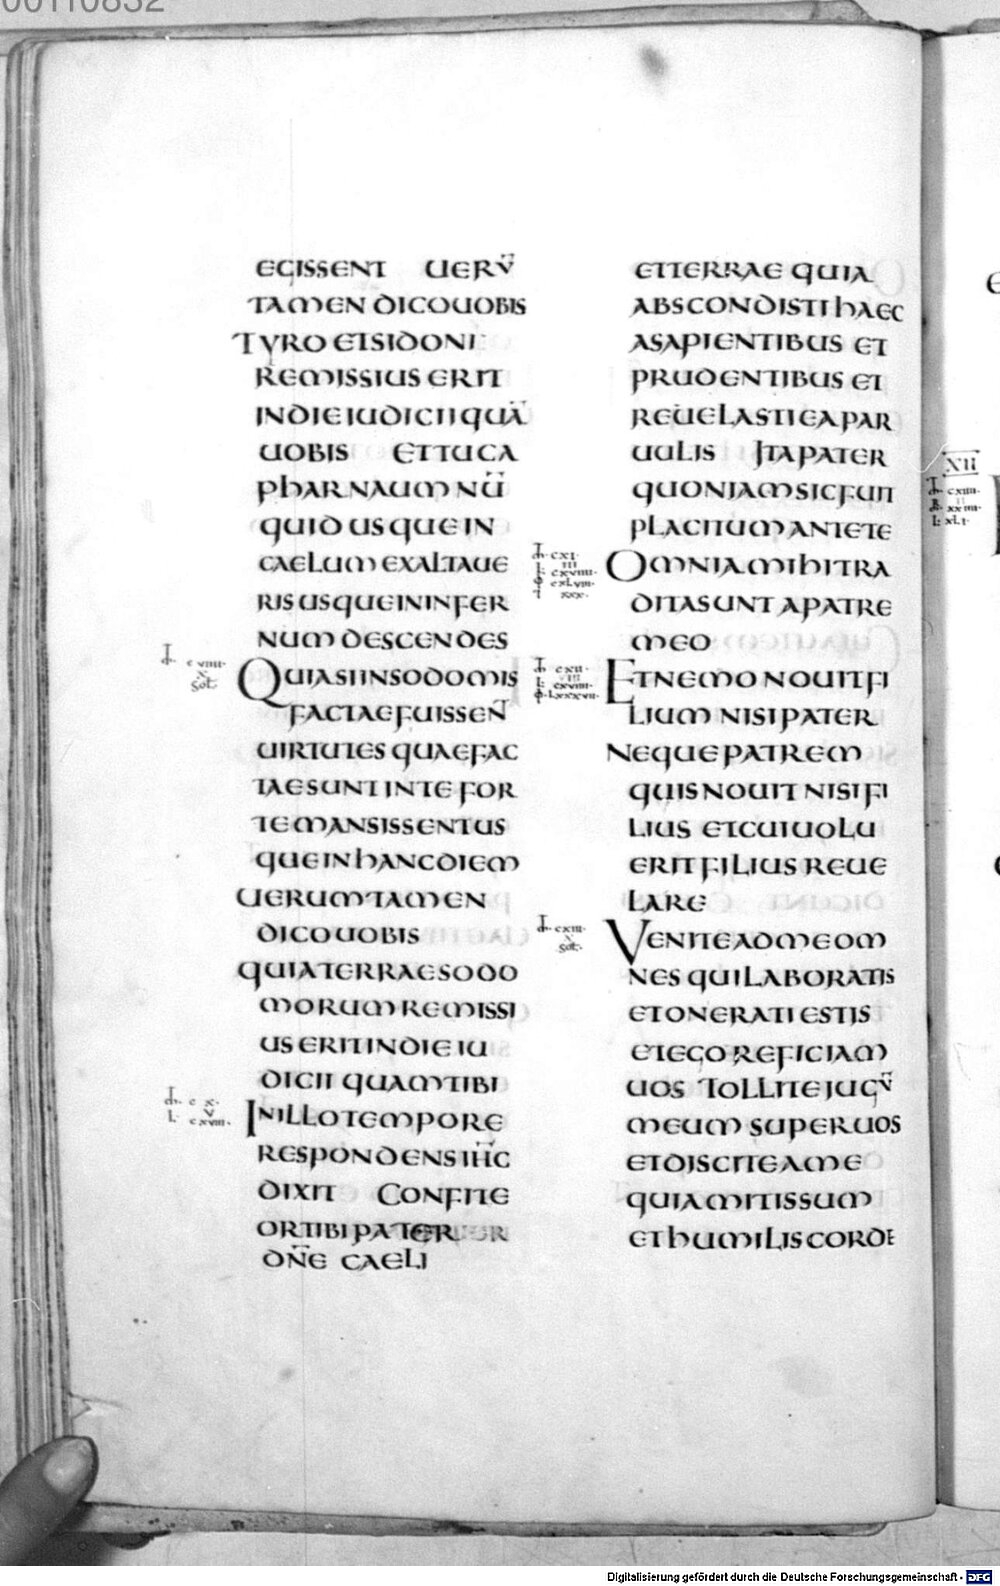 00110832
EGISSENT UERŪ
TAMEN DICOUOBIS
TYRO ETSIDONI
REMISSIUS ERIT
INDIEIUDICIIQUĀ
UOBIS ETTUCA
PHARNAUMNŪ
QUIDUSQUEIN
CAELUMEXALTAUE
RISUSQUEININFER
NUMDESCENDES
QUIASIINSODOMIS
FACTAEFUISSEN̄
UIRTUTESQUAEFAC
TAESUNTINTEFOR
TEMANSISSENTUS
QUEINHANCDIEM
UERUMTAMEN
DICOUOBIS
QUIATERRAESODO
MORUMREMISSI
USERITINDIEIU
DICII QUAMTIBI
INILLOTEMPORE
RESPONDENSIH̄C
DIXIT CONFITE
ORTIBIPATER
DN̄E CAELI
c viiii·
x
sol·
c x·
v
l· cxviii·
ETTERRAE QUIA
ABSCONDISTIHAEC
ASAPIENTIBUS ET
PRUDENTIBUS ET
REUELASTIEAPAR
UULIS ITAPATER
QUONIAMSICFUIT
PLACITUMANTETE
OMNIAMIHITRA
DITASUNTAPATRE
MEO
ETNEMONOUITFI
LIUMNISIPATER
NEQUEPATREM
QUISNOUITNISIFI
LIUS ETCUIUOLU
ERITFILIUSREUE
LARE
VENITEADMEOM
NESQUILABORATIS
ETONERATIESTIS
ETEGOREFICIAM
UOS TOLLITEIUGŪ
MEUMSUPERUOS
ETDISCITEAME
QUIAMITISSUM
ETHUMILISCORDE
cxi·
iii
l· cxviiii·
cxlviii·
xxx·
cxii·
iii
l· cxviiii·
lxxxvii·
cxiii·
x
sol·
XII
cxiiii·
ii
xxiiii·
l· xli·
Digitalisierung gefördert durch die Deutsche Forschungsgemeinschaft - DFG